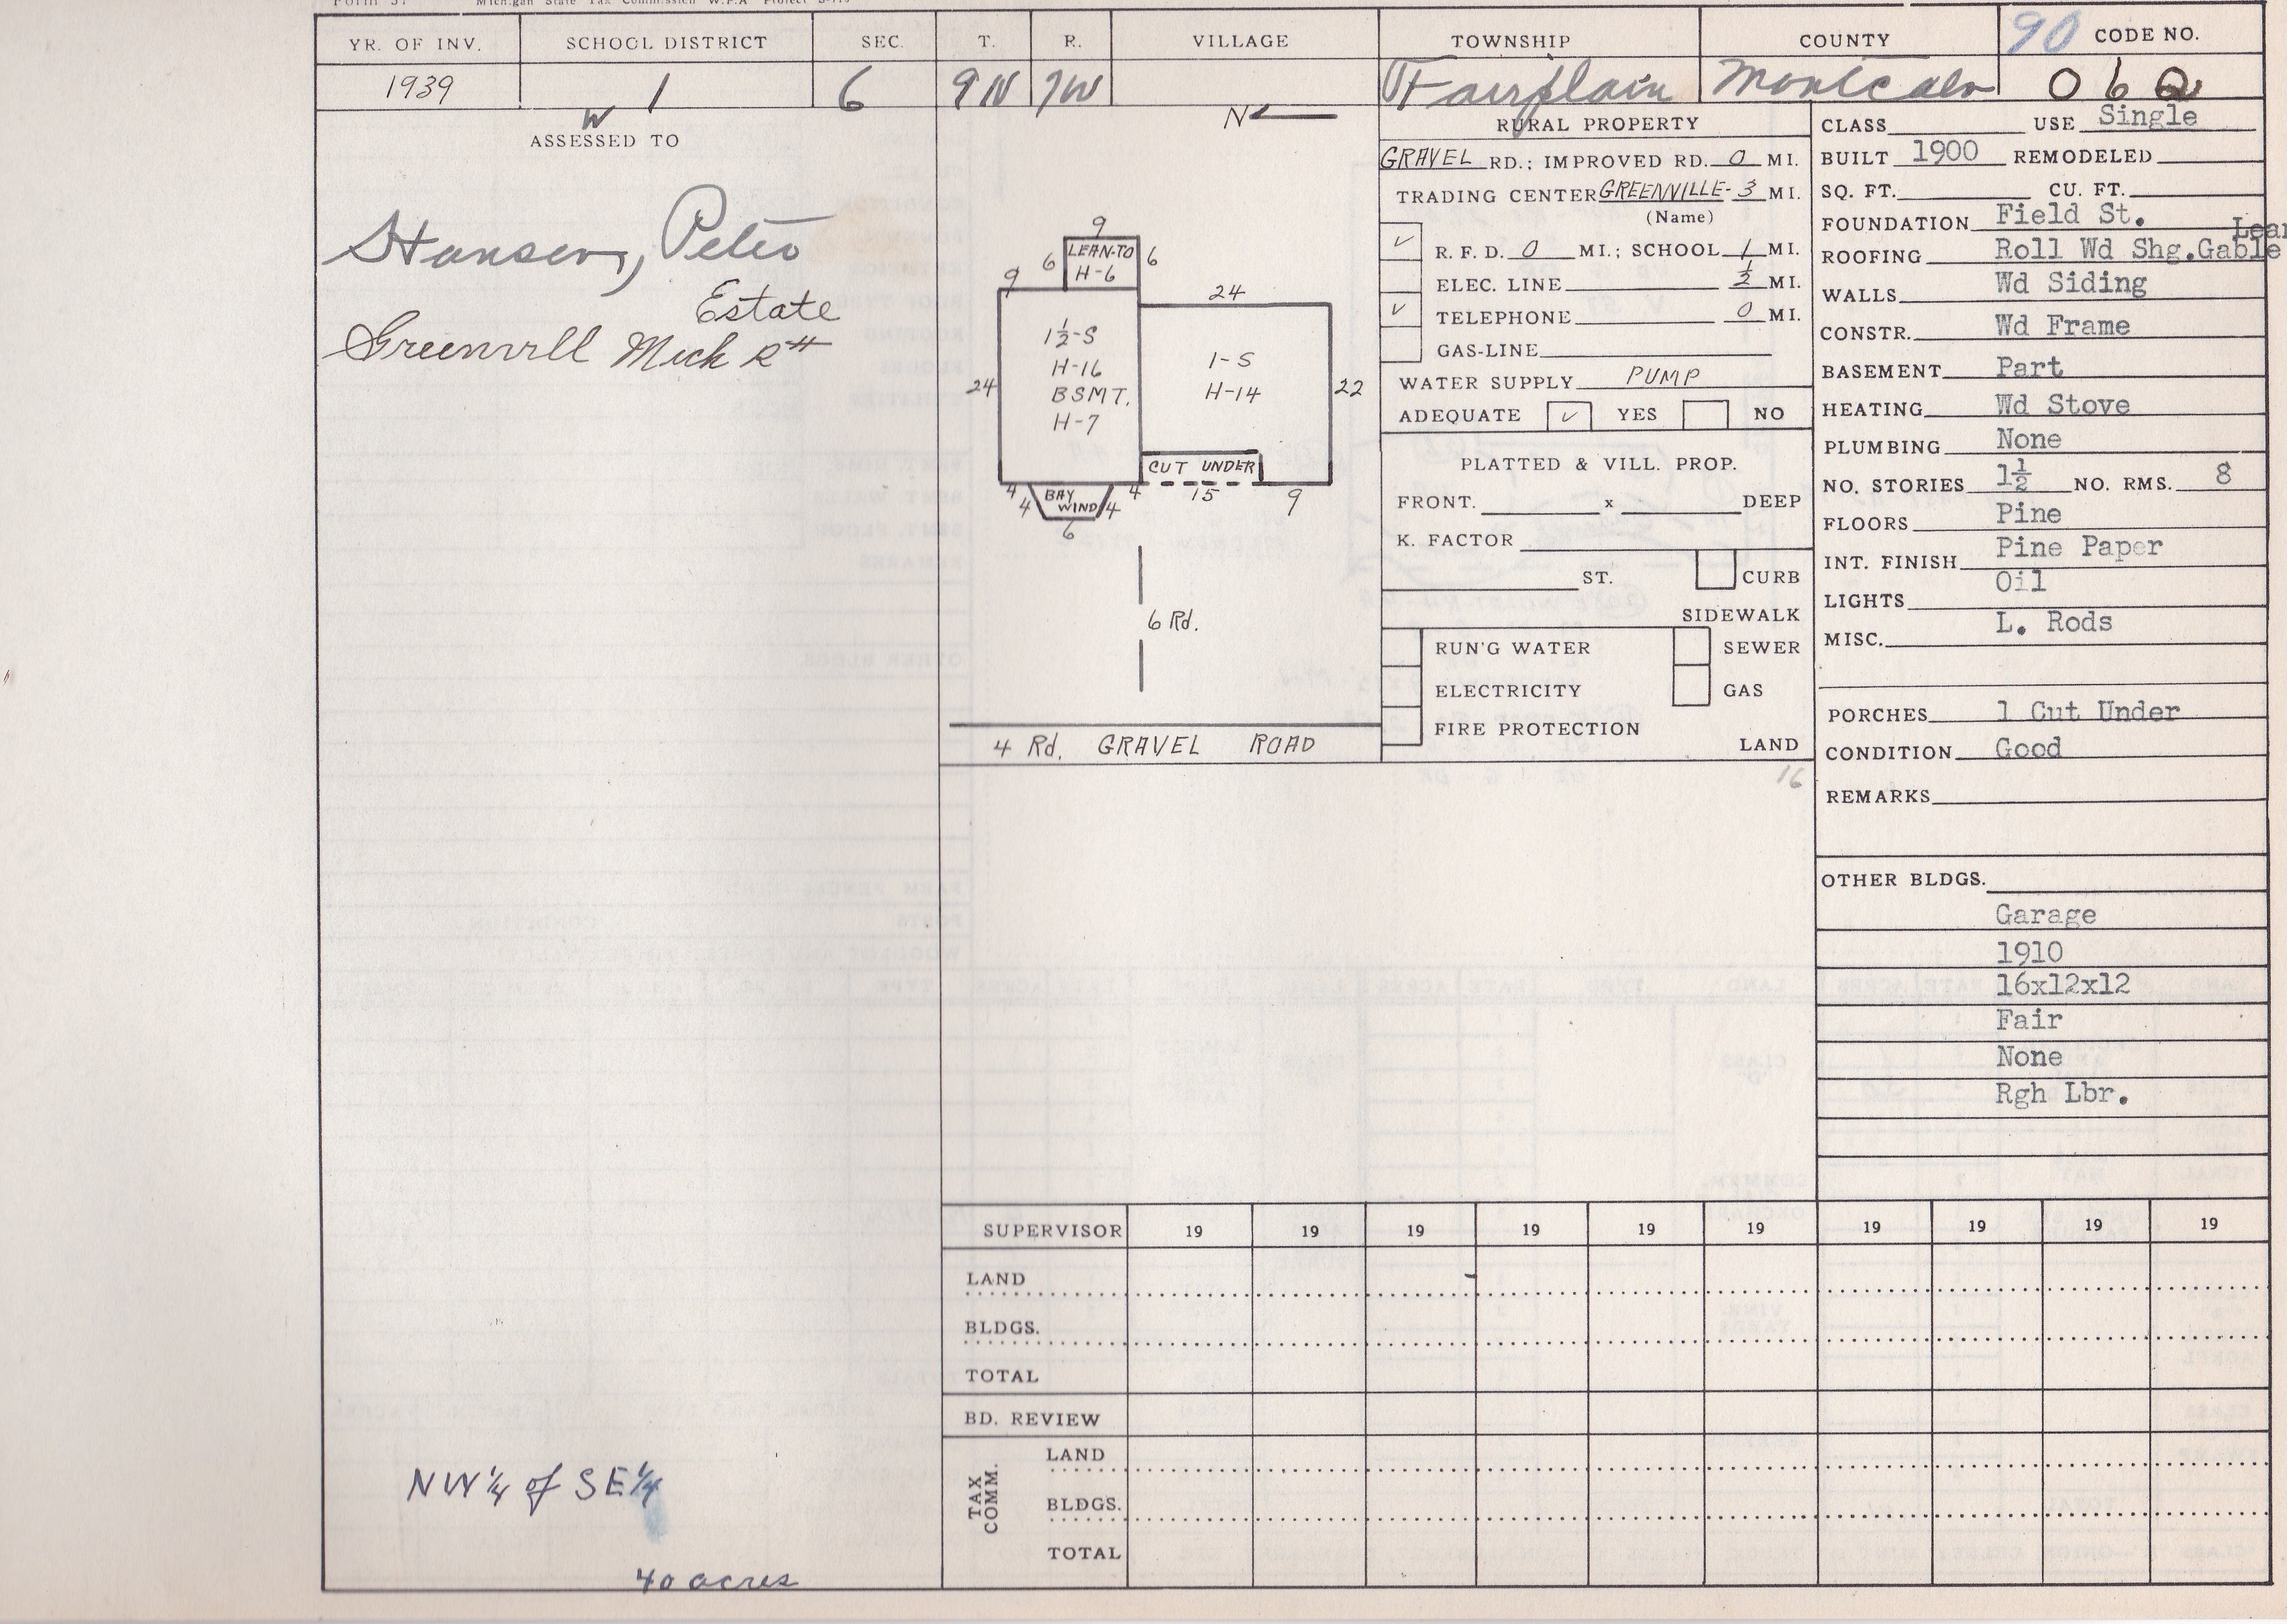 Form 37 Michigan State Tax Commission W.P.A Project
YR. OF INV. SCHOOL DISTRICT SEC. T. R. VILLAGE TOWNSHIP COUNTY 90 CODE NO.
1939 1 6 9N 7W Fairplain Montcalm 06
W
ASSESSED TO
Peter
Estate
Greenvill Mich R#
NW¼ of SE¼
40 acres
N
9
LEAN-TO
H-6
6 6
9
24
1½-S
H-16
BSMT.
H-7
24
1-S
H-14
22
CUT UNDER
4 4 15 9
BAY
WIND
4 4
6
6 Rd.
4 Rd. GRAVEL ROAD
RURAL PROPERTY
GRAVEL RD.; IMPROVED RD. 0 MI.
TRADING CENTER GREENVILLE- 3 MI.
(Name)
✓ R. F. D. 0 MI.; SCHOOL 1 MI.
ELEC. LINE ½ MI.
✓ TELEPHONE 0 MI.
GAS-LINE
WATER SUPPLY PUMP
ADEQUATE ✓ YES NO
PLATTED & VILL. PROP.
FRONT. x DEEP
K. FACTOR
ST. CURB
SIDEWALK
RUN'G WATER SEWER
ELECTRICITY GAS
FIRE PROTECTION
LAND
16
CLASS USE Single
BUILT 1900 REMODELED
SQ. FT. CU. FT.
FOUNDATION Field St.
Lean
ROOFING Roll Wd Shg.Gable
WALLS Wd Siding
CONSTR. Wd Frame
BASEMENT Part
HEATING Wd Stove
PLUMBING None
NO. STORIES 1½ NO. RMS. 8
FLOORS Pine
INT. FINISH Pine Paper
LIGHTS Oil
MISC. L. Rods
PORCHES 1 Cut Under
CONDITION Good
REMARKS
OTHER BLDGS.
Garage
1910
16x12x12
Fair
None
Rgh Lbr.
SUPERVISOR 19 19 19 19 19 19 19 19 19 19
LAND
BLDGS.
TOTAL
BD. REVIEW
TAX COMM.
LAND
BLDGS.
TOTAL